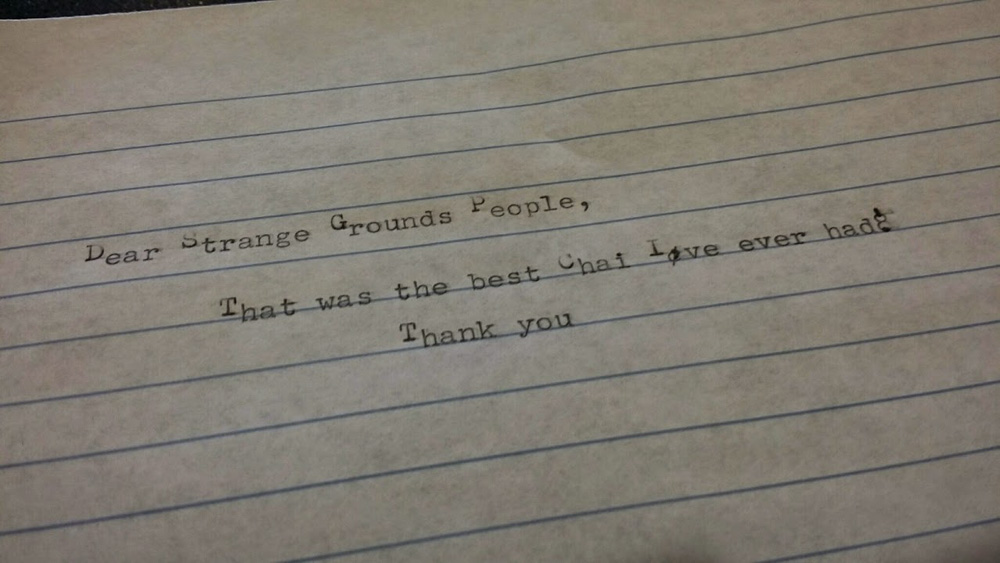 Dear Strange Grounds People,
That was the best Chai I've ever had!
Thank you